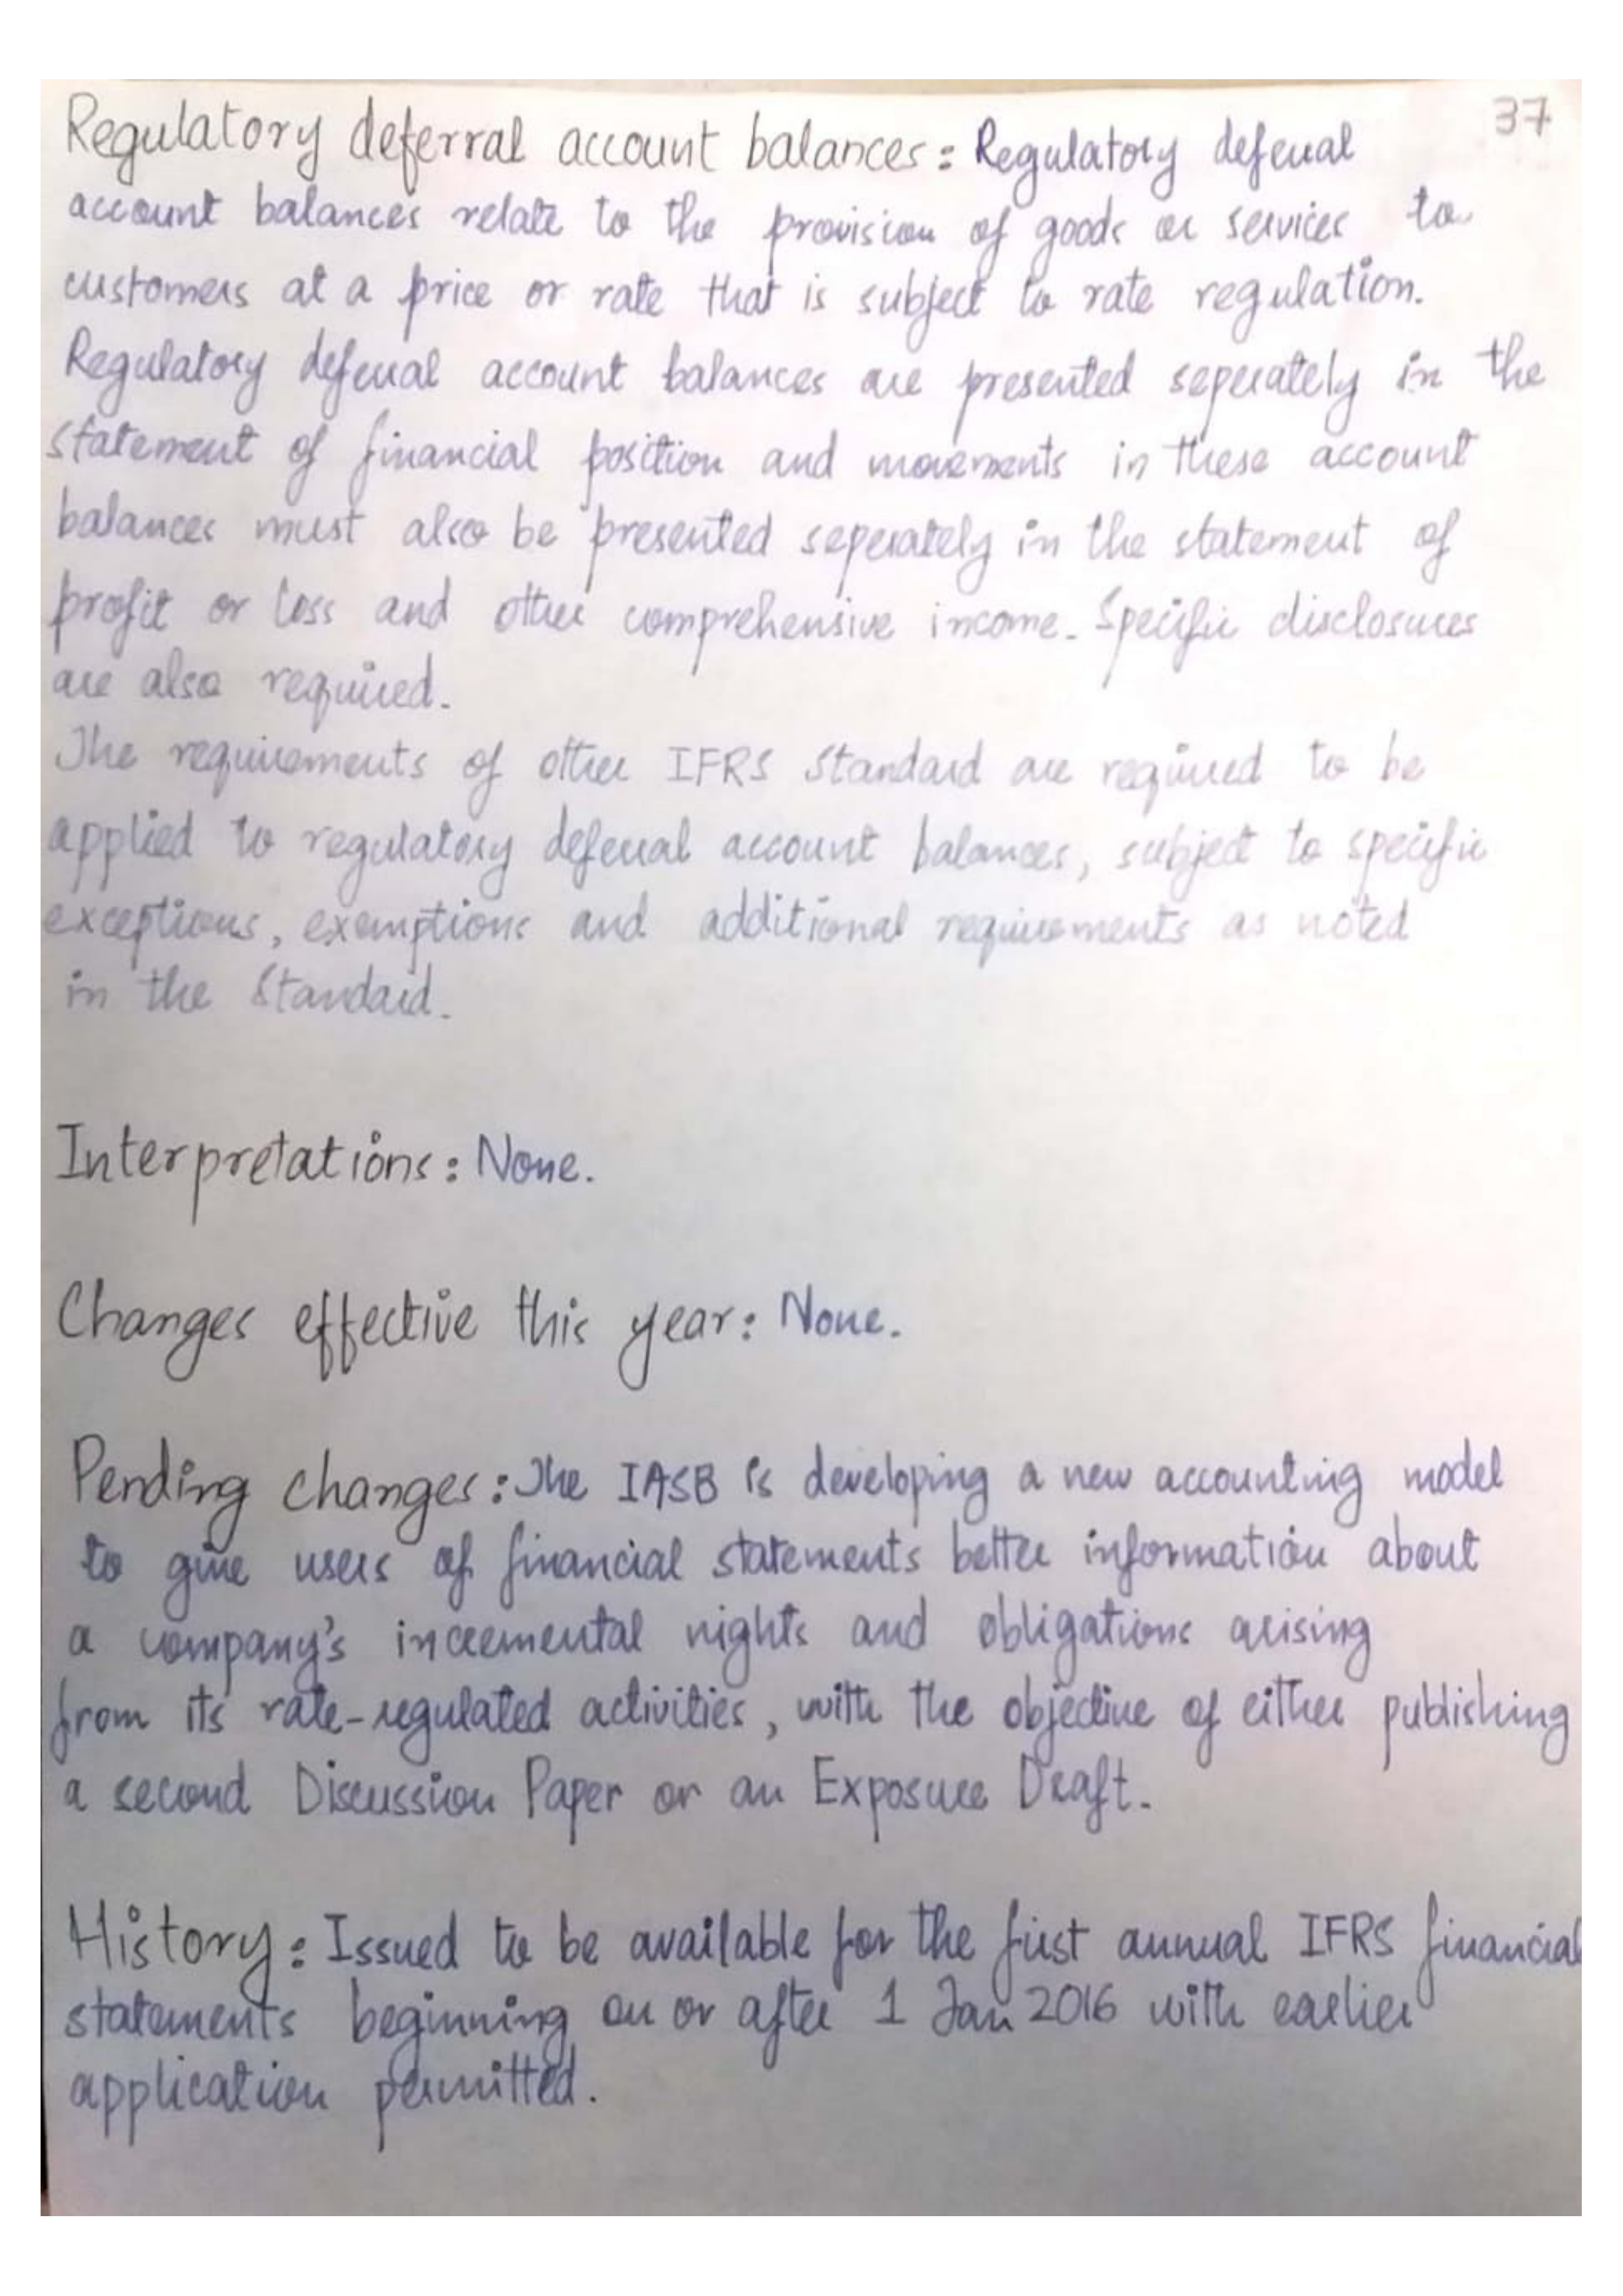 37
Regulatory deferral account balances: Regulatory deferral
account balances relate to the provision of goods or services to
customers at a price or rate that is subject to rate regulation.
Regulatory deferral account balances are presented seperately in the
statement of financial position and movements in these account
balances must also be presented seperately in the statement of
profit or loss and other comprehensive income. Specific disclosures
are also required.
The requirements of other IFRS Standard are required to be
applied to regulatory deferral account balances, subject to specific
exceptions, exemptions and additional requirements as noted
in the Standard.
Interpretations: None.
Changes effective this year: None.
Pending changes: The IASB is developing a new accounting model
to give users of financial statements better information about
a company's incremental rights and obligations arising
from its rate-regulated activities, with the objective of either publishing
a second Discussion Paper or an Exposure Draft.
History: Issued to be available for the first annual IFRS financial
statements beginning on or after 1 Jan 2016 with earlier
application permitted.